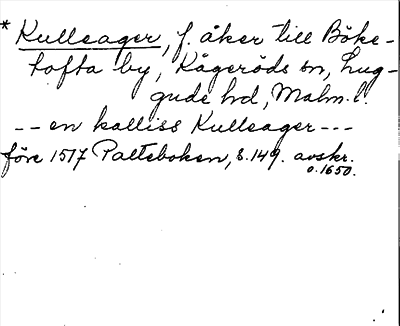 * Kulleager, f. åker till Böke-
tofta by, Kågeröds sn, Lug-
gude hd, Malm. l.
-- en kalliss Kulleager ---
före 1517 Palteboken, s. 149. avskr.
o. 1650.